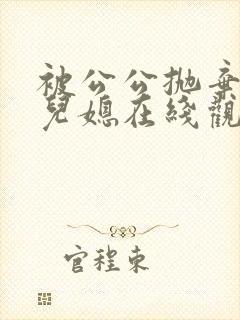 被公公抛弃
兒媳在綫觀
官程東